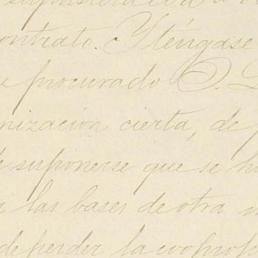 contrato. Y téngase
procurado
nización cierta, de
suponerse que se h
las bases de otra
de perder la cooprop